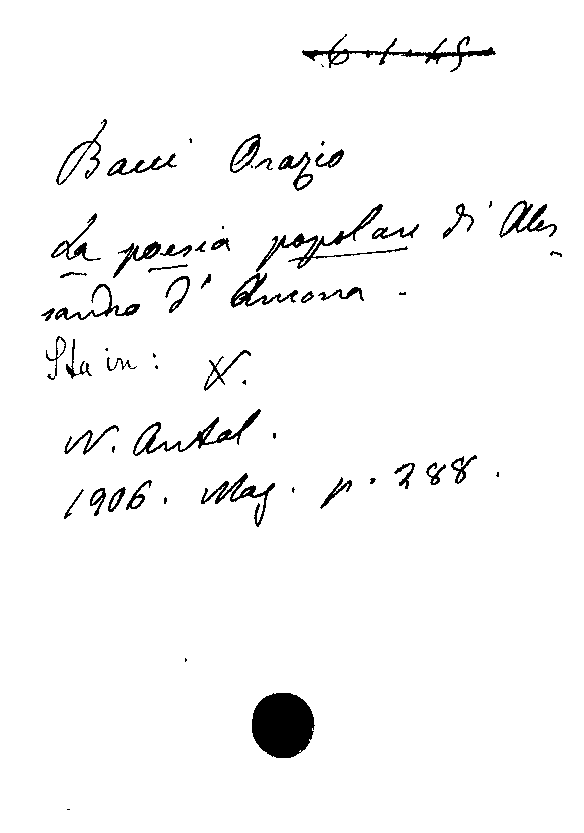 6-1-45
Bacci Orazio
La poesia popolare di Ales
sandro d'Ancona.
Sta in: N.
N. Antol.
1906. Mag. p. 288.